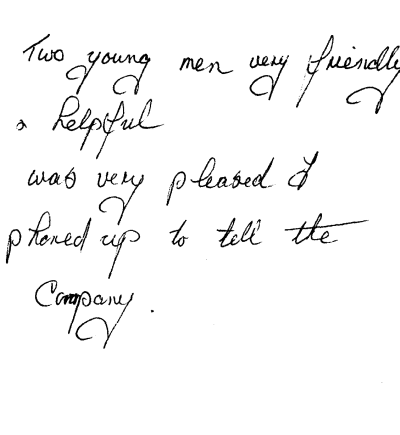 Two young men very friendly
& helpful
was very pleased I
phoned up to tell the
Company.